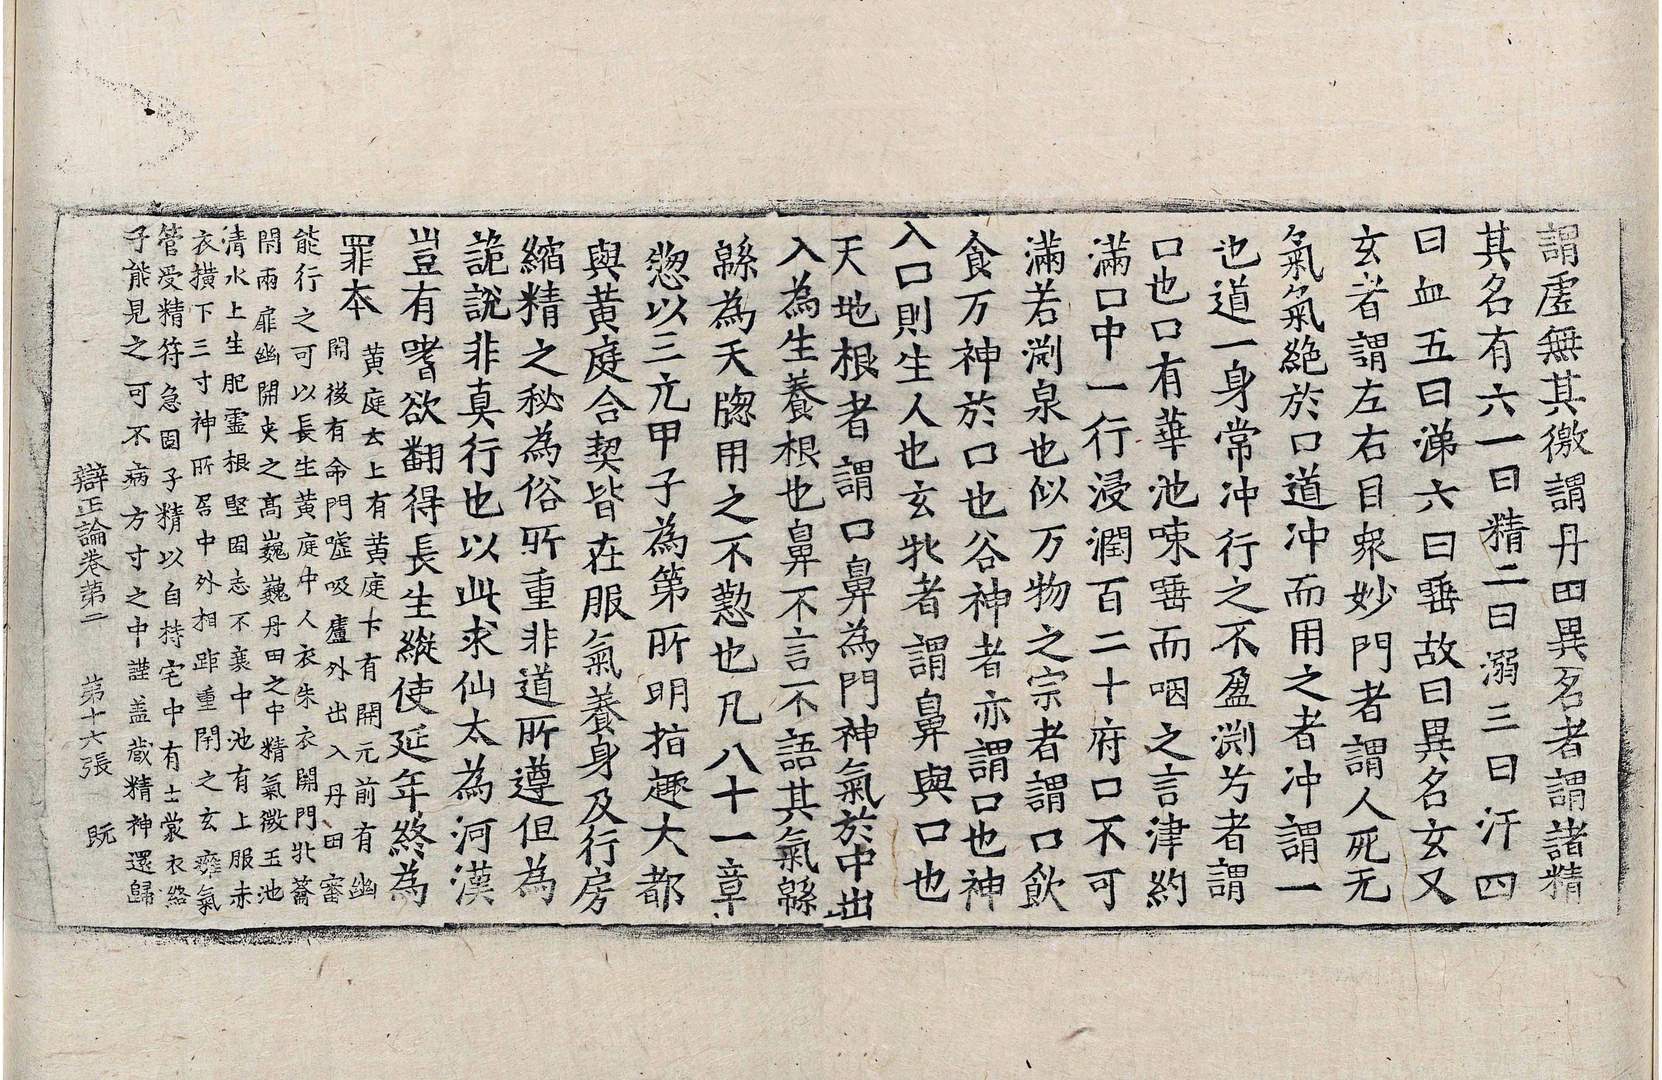 謂虛無其徼謂丹田異名者謂諸精
其名有六一曰精二曰溺三曰汗四
曰血五曰涕六曰唾故曰異名玄又
玄者謂左右目衆妙門者謂人死无
氣氣絶於口道冲而用之者冲謂一
也道一身常冲行之不盈渕兮者謂
口也口有華池唻唾而咽之言津約
滿口中一行浸潤百二十府口不可
滿若渕泉也似万物之宗者謂口飲
食万神於口也谷神者亦謂口也神
入口則生人也玄牝者謂鼻與口也
天地根者謂口鼻為門神氣於中出
入為生養根也鼻不言不語其氣緜
緜為天牎用之不懃也凡八十一章
惣以三元甲子為第所明指趣大都
與黄庭合契皆在服氣養身及行房
縮精之秘為俗所重非道所遵但為
詭說非真行也以此求仙太為河漢
豈有嗜欲翻得長生縱使延年終為
罪本
黄庭云上有黄庭下有開元前有幽
闕後有命門噓吸廬外出入丹田審
能行之可以長生黄庭中人衣朱衣開門牝蘥
闔兩扉幽關夾之髙巍巍丹田之中精氣微玉池
清水上生肥靈根堅固志不衰中池有上服赤
衣横下三寸神所居中外相距重閇之玄癰氣
管受精符急固子精以自持宅中有士常衣絳
子能見之可不病方寸之中謹盖藏精神還歸
辯正論卷第二 第十六張 既